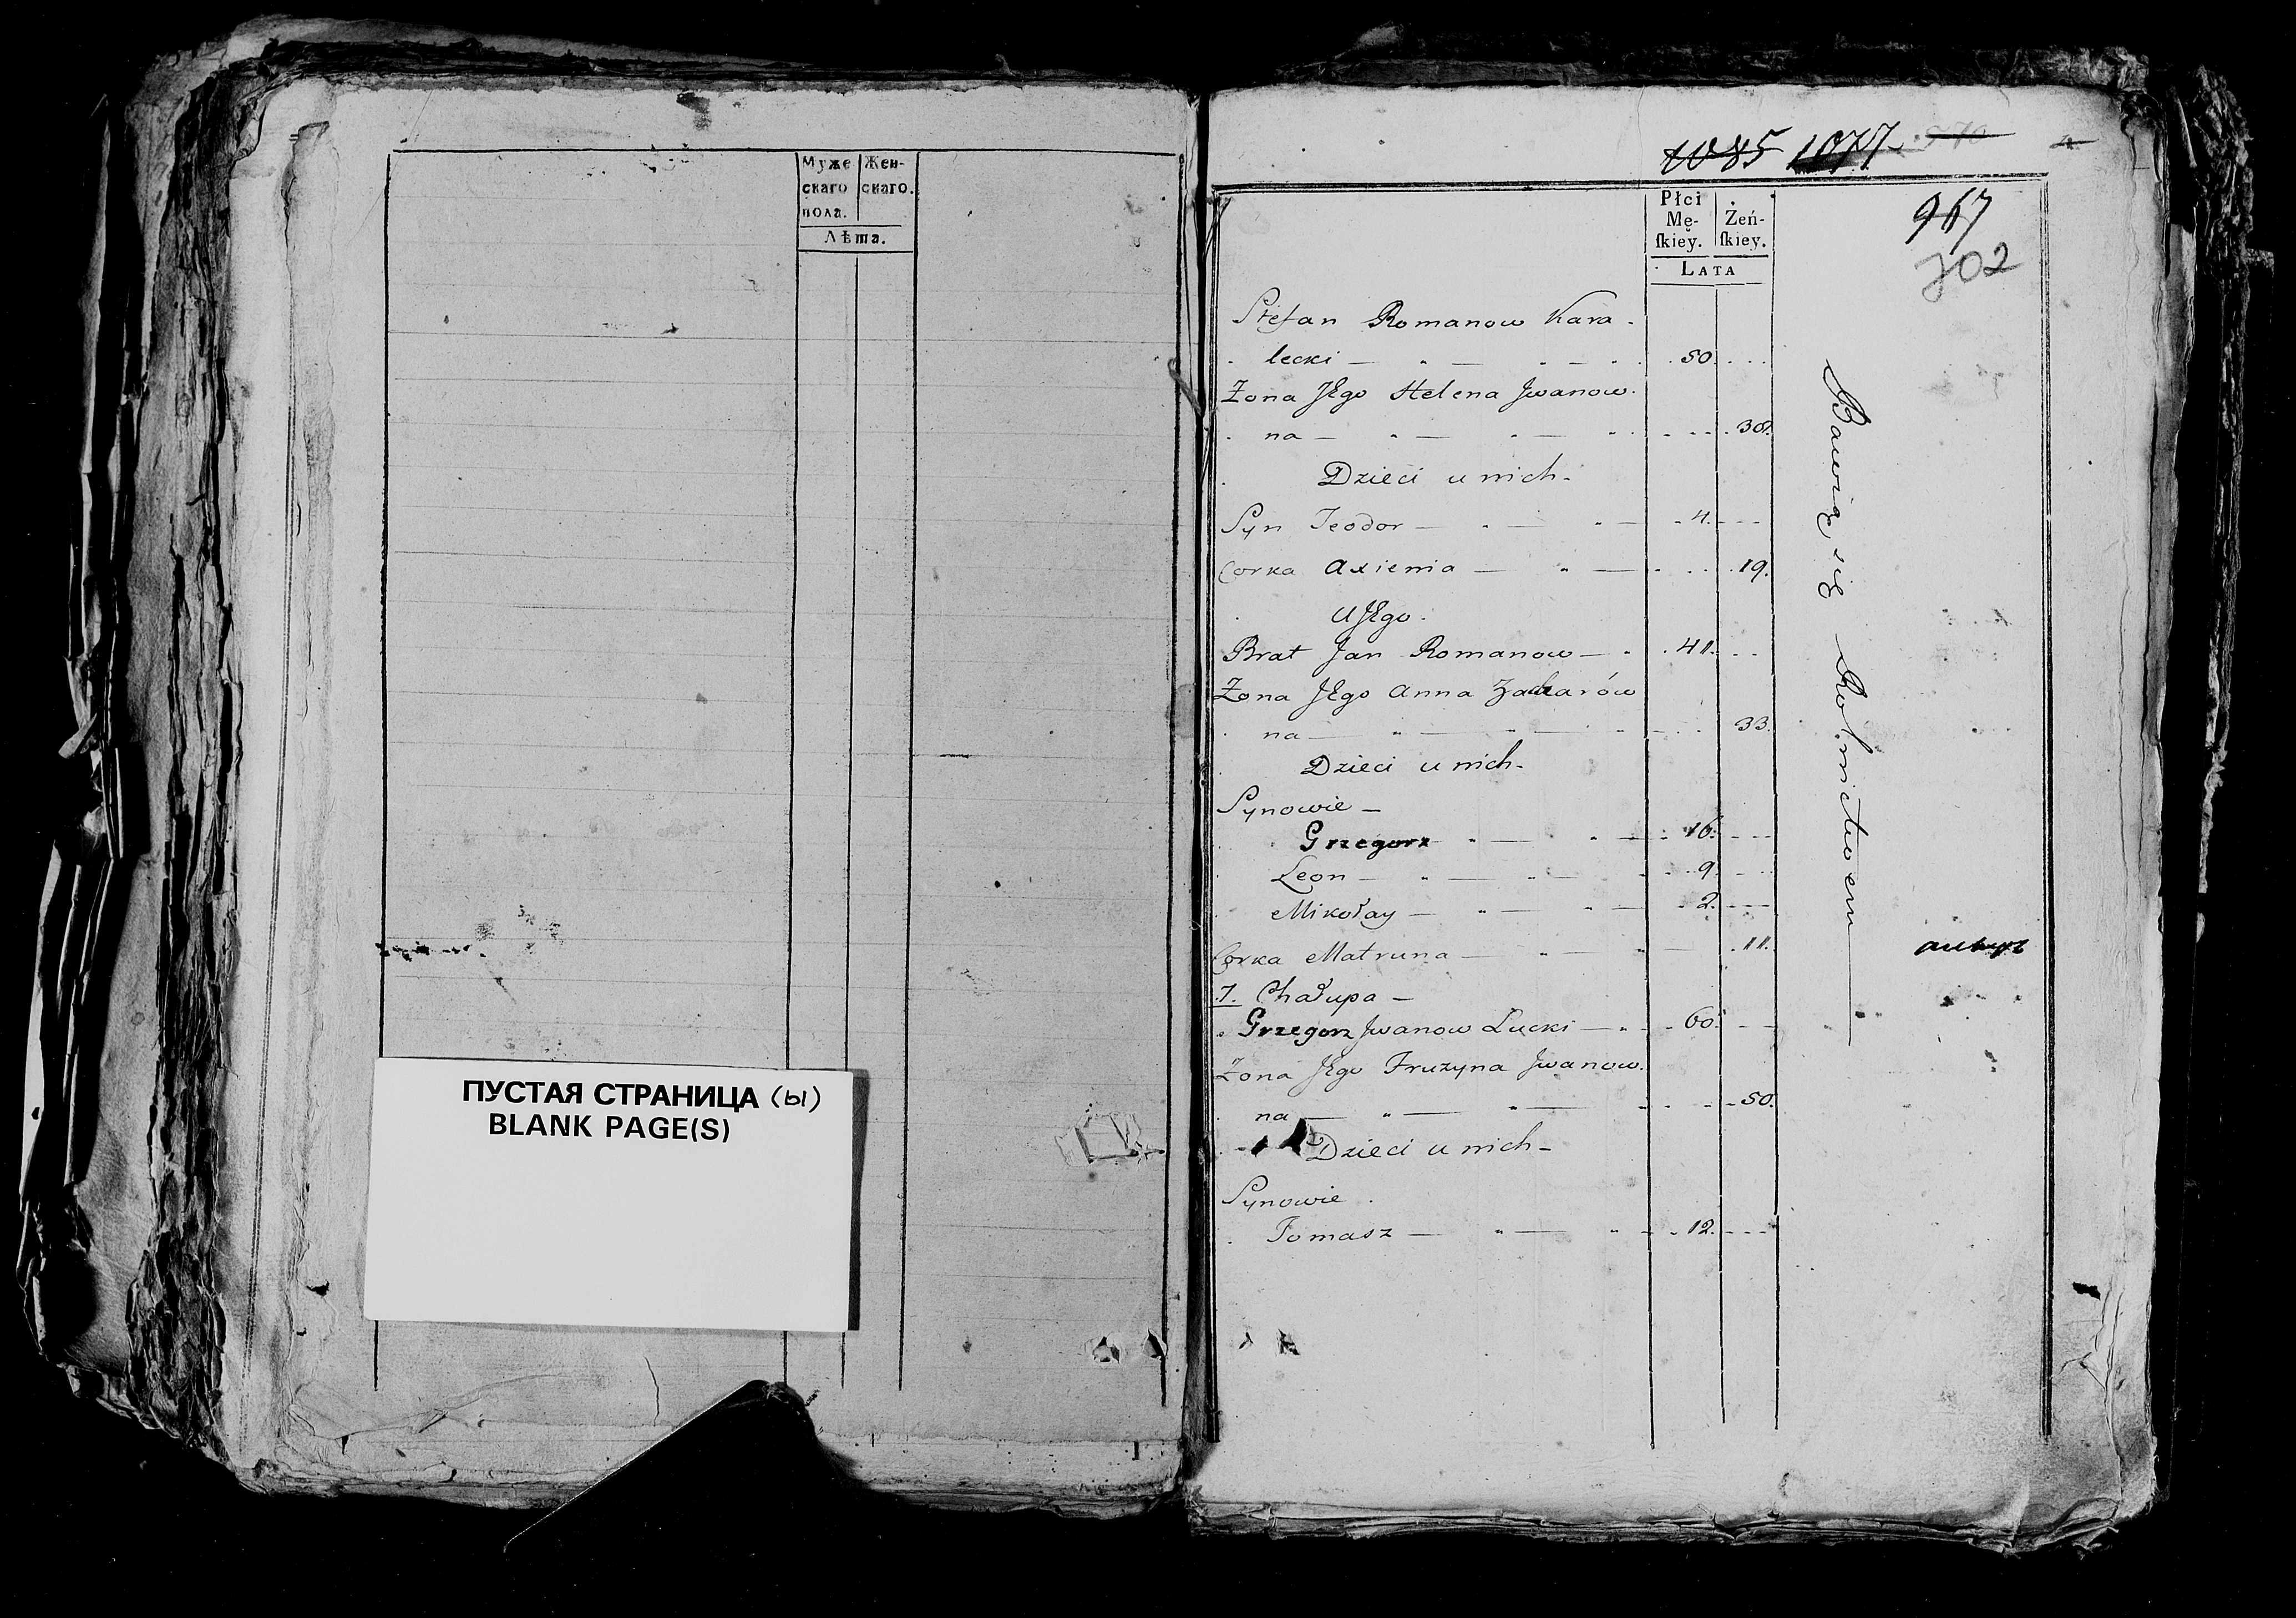 Муже Жен-
скаго скаго.
пола.
Лѣта.
ПУСТАЯ СТРАНИЦА (ы)
BLANK PAGE(S)
1085 1077
967
702
Płci
Mę- Żeń-
ſkiey. ſkiey.
LATA
Stefan Romanow Kara-
lecki 50
Żona Jego Helena Jwanow-
na 38.
Dzieci u nich
Syn Teodor 4
Corka Axienia 19.
U Jego
Brat Jan Romanow 41.
Żona Jego Anna Zacharów
na 33.
Dzieci u nich
Synowie
Grzegorz 16.
Leon 9.
Mikołay 2.
Corka Matruna 11.
7. Chałupa
Grzegorz Jwanow Lucki 60.
Żona Jego Fruzyna Jwanow-
na 50.
Dzieci u nich
Synowie
Tomasz 12.
Bawią się Rolnictwem